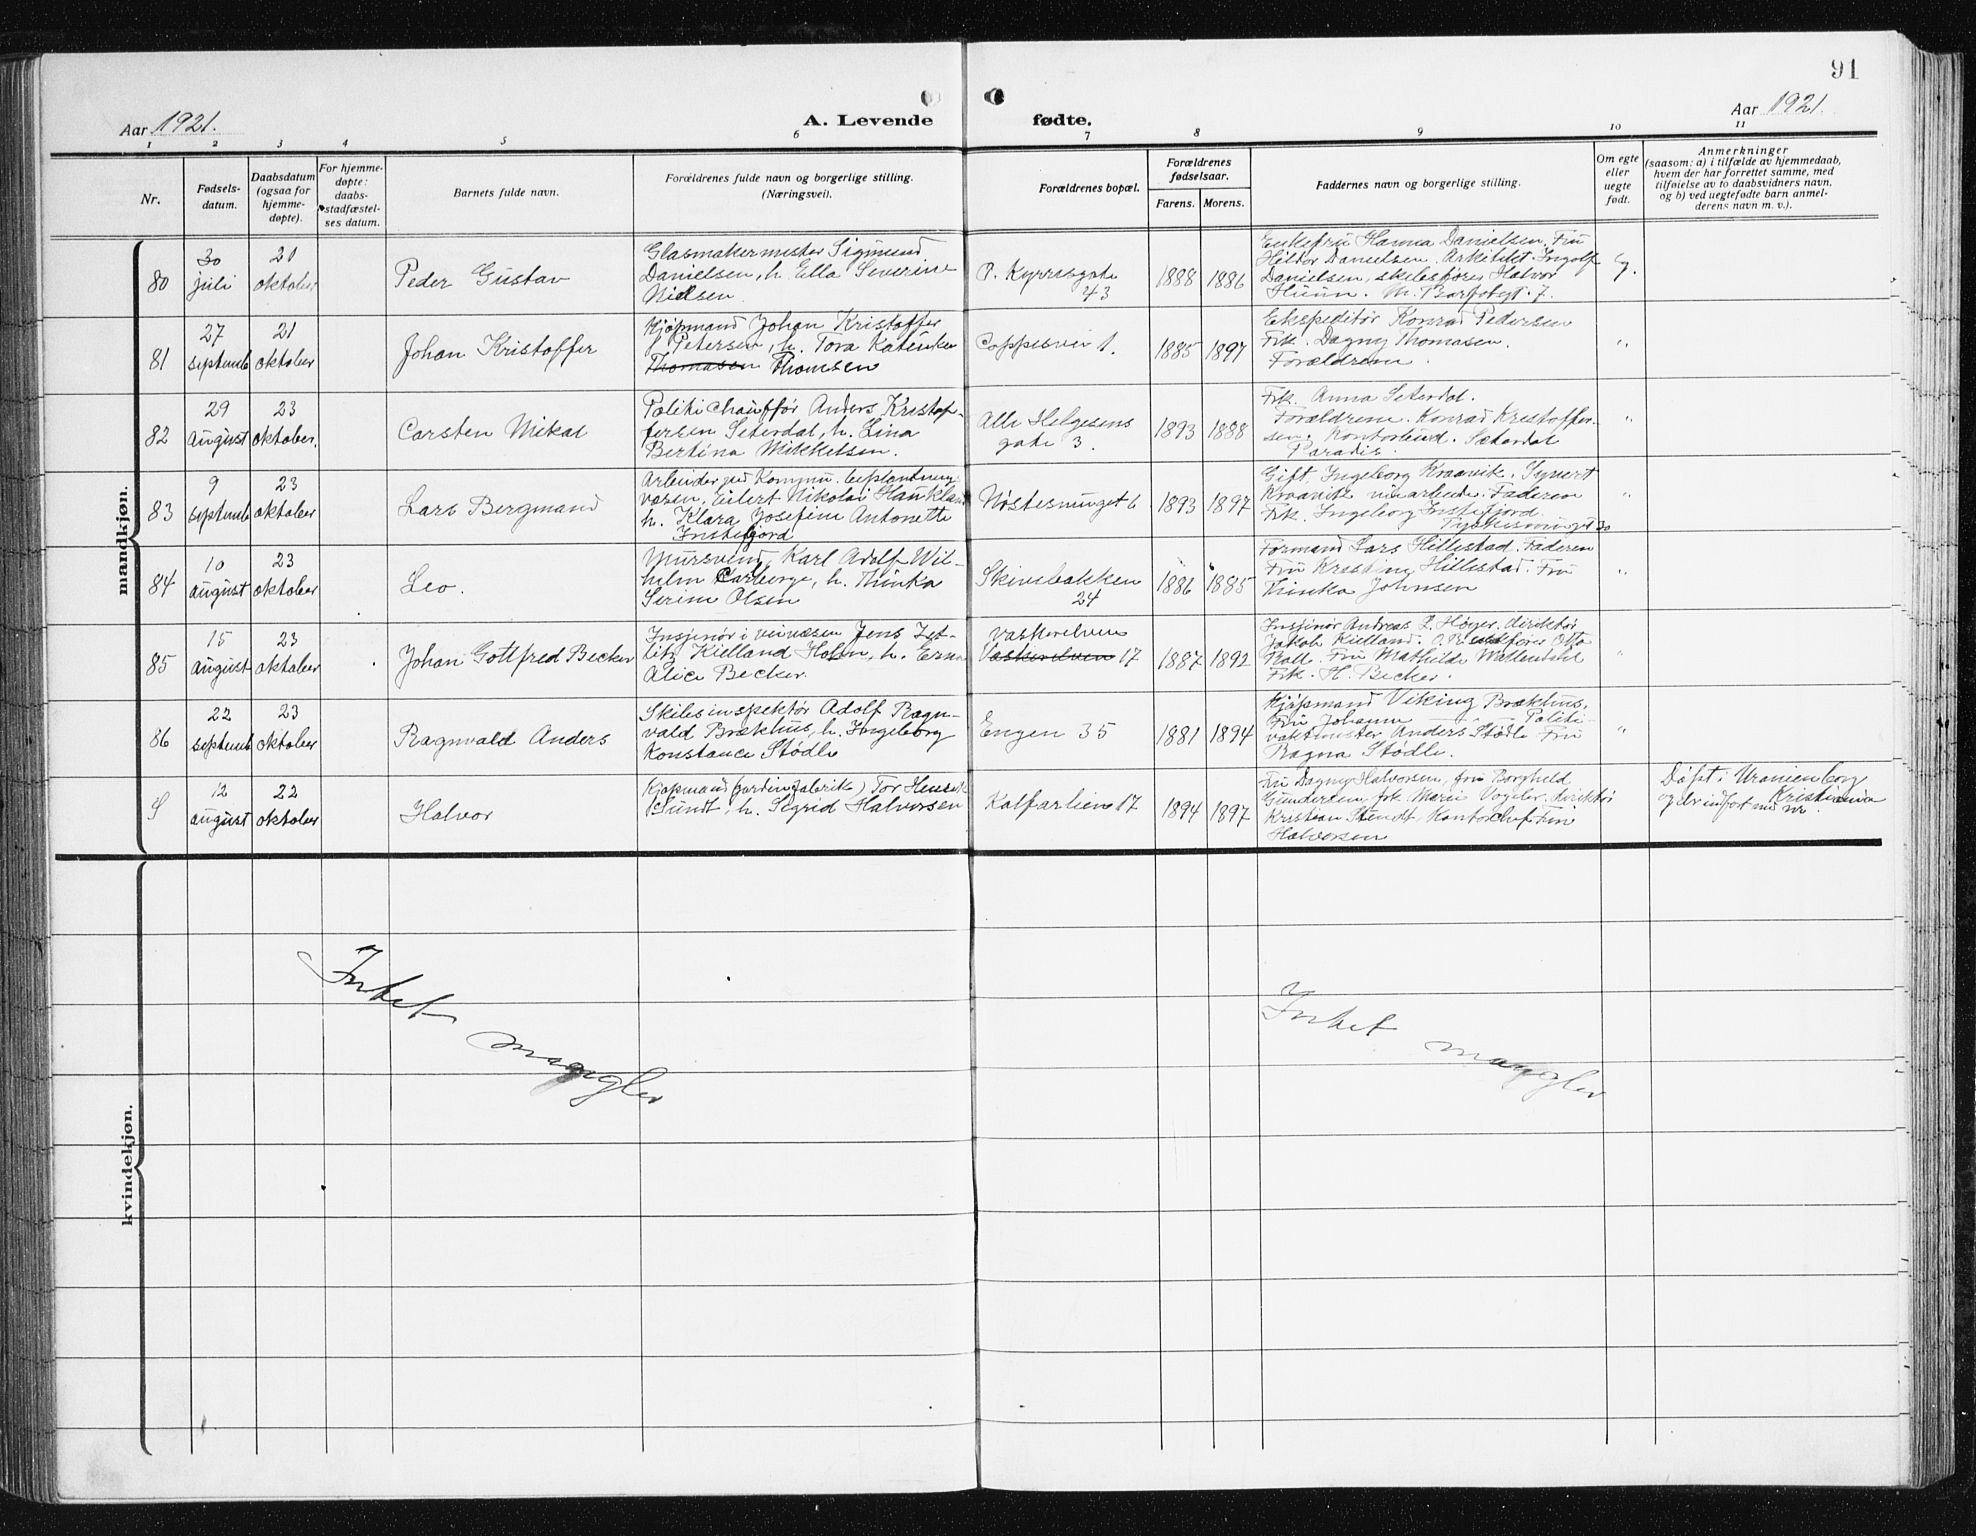 91
Aar 1921.
A. Levende fødte.
Aar 1921.
1 2 3 4 5 6 7 8 9 10 11
Nr.
Fødsels-
datum.
Daabsdatum
(ogsaa for
hjemme-
døpte).
For hjemme-
døpte:
daabs-
stadfæstel-
ses datum.
Barnets fulde navn.
Forældrenes fulde navn og borgerlige stilling.
(Næringsvei).
Forældrenes bopæl.
Forældrenes
fødselsaar.
Farens. Morens.
Faddernes navn og borgerlige stilling.
Om egte
eller
uegte
født.
Anmerkninger
(saasom: a) i tilfælde av hjemmedaab,
hvem der har forrettet samme, med
tilføielse av to daabsvidners navn,
og b) ved uegtefødte barn anmel-
derens navn m. v.).
mandkjøn.
80
30
juli
21
oktober
Peder Gustav
Glasmakermester Sigmund
Danielsen, h. Ella Severine
Nielsen.
P. Kyrresgate
43
1888 1886
Enkefru Hanna Danielsen. Fru
Danielsen. Arkitekt Ingolf
Danielsen, skibsfører Halvor
g.
81
27
septemb
21
oktober
Johan Kristoffer
Kjøpmand Johan Kristoffer
Petersen, h. Tora Katinka
Thomasen Thomsen
1.
1885 1897
Ekspeditør Konrad Pedersen
Frk. Dagny Thomasen.
Forældrene.
"
82
29
august
23
oktober.
Carsten Mikal
Politichauffør Anders Kristof-
fersen Seterdal, h. Lina
Bertina Mikkelsen.
Alle Helgesens
gate 3
1893 1888
Frk. Anna Seterdal.
Forældrene. Konrad Kristoffer-
sen. Sæterdal
Paradis.
"
83
9
septemb
23
oktober
Lars Bergmand
Arbeider ved Kommu. beplantnings
væsen, Eilert Nikolai Haukland
h. Klara Josefine Antonette
Instefjord
Nøstesmuget 6
1893 1897
Gift Ingeborg Kraavik. Synert
Kraavik arbeider. Faderen
Frk. Ingeborg Instefjord.
30
"
84
10
august
23
oktober
Leo.
Mursvend, Karl Adolf Wil-
helm Carlberge, h. Thinka
Serine Olsen
Skivebakken
24
1886 1885
Formand Lars Hillestad. Faderen
Fru Kristine Hillestad. Fru
Thinka Johnsen
"
85
15
august
23
oktober
Johan Gottfred Becker
Insjenør i veivæsen Jens Zet-
litz Kielland Holm, h. Erna
Alice Becker.
Vaskerelven
Vaskerelven 17
1887 1892
Insjenør Andreas L. Høyer, direktør
Jakob Kielland. Otto
Fru Mathilde Wallendahl
Frk. H. Becker.
"
86
22
septemb
23
oktober
Ragnvald Anders
Skibsinspektør Adolf Ragn-
vald Brækhus, h. Ingeborg
Konstance Stødle
Engen 35
1881 1894
Kjøpmand Viking Brækhus.
Fru Johanne " Politi-
vaktmester Anders Stødle Fru
Ragna Stødle.
"
12
august
22
oktober
Halvor
Kjøpmand (gardinfabrik) Tor Henrik
Sundt, h. Sigrid Halvorsen
Kalfarlien 17
1894 1897
Fru Dagny Halvorsen, fru Borghild
Gundersen, frk. Marie Vogler, direktør
Kristian Sundt, Kontorchef Finn
Halvorsen
Døpt i Uranienborg
Kristiania
og der indført med nr.
kvindekjøn.
Intet mangler
Intet mangler